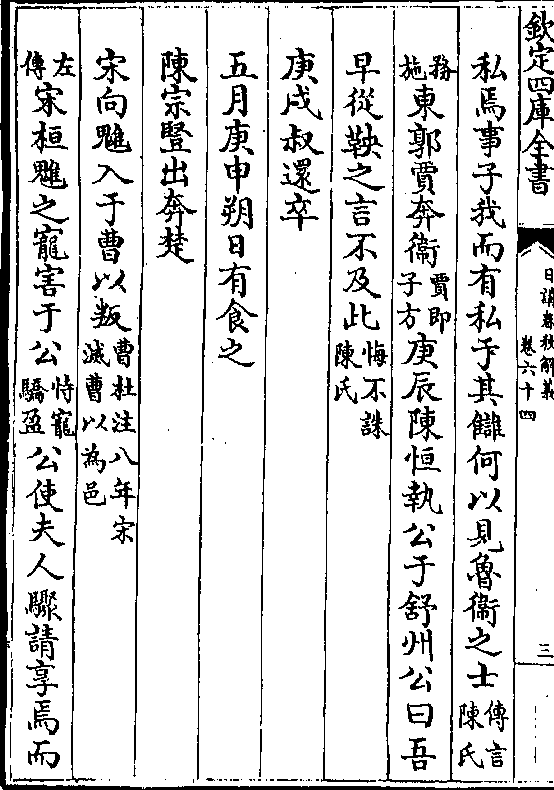 欽定四庫全書
日講春秋解義
卷六十四
三
私焉事子我而有私于其讎何以見魯衞之士傳言陳氏
務施東郭賈奔衞賈即子方庚辰陳恒執公于舒州公曰吾
早從鞅之言不及此悔不誅陳氏
庚戌叔還卒
五月庚申朔日有食之
陳宗豎出奔楚
宋向魋入于曹以叛曹杜注八年宋滅曹以為邑
左傳宋桓魋之寵害于公恃寵驕盈公使夫人驟請享焉而